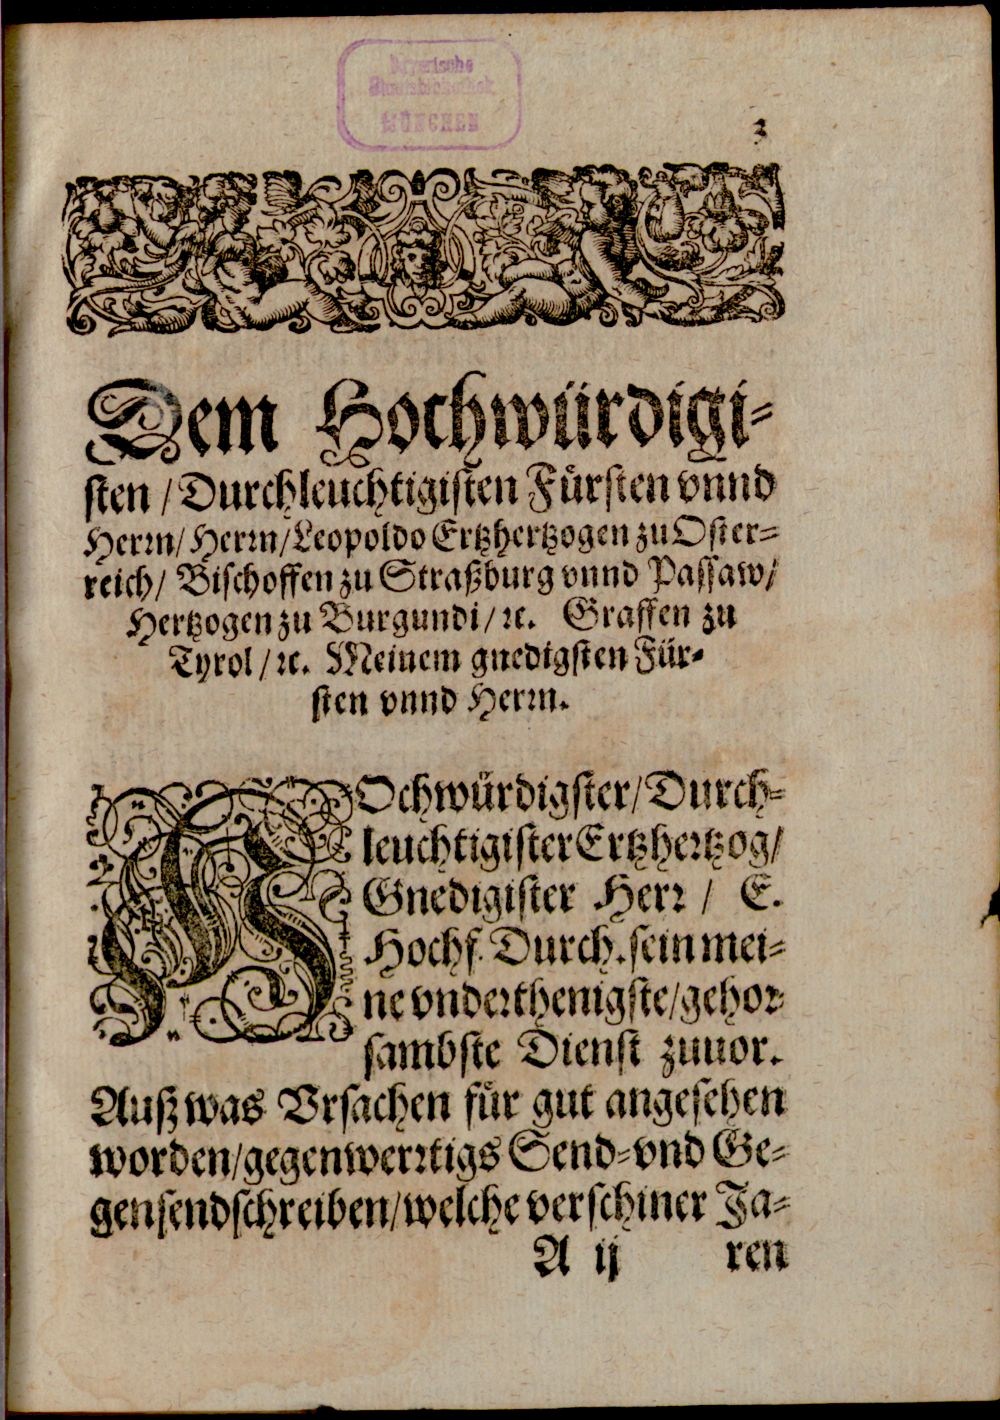 Bayerische
Staatsbibliothek
MÜNCHEN
2
Dem Hochwürdigi-
sten / Durchleuchtigisten Fürsten vnnd
Herrn/ Herrn/ Leopoldo Ertzhertzogen zu Oster-
reich/ Bischoffen zu Straßburg vnnd Passaw/
Hertzogen zu Burgundi/ ꝛc. Graffen zu
Tyrol / ꝛc. Meinem gnedigsten Für-
sten vnnd Herrn.
HOchwürdigster/ Durch-
leuchtigister Ertzhertzog/
Gnedigister Herr / E.
Hochf. Durch. sein mei-
ne vnderthenigste/ gehor-
sambste Dienst zuuor.
Auß was Vrsachen für gut angesehen
worden/ gegenwerrtigs Send- vnd Ge-
gensendschreiben/ welche verschiner Ja-
A ij ren